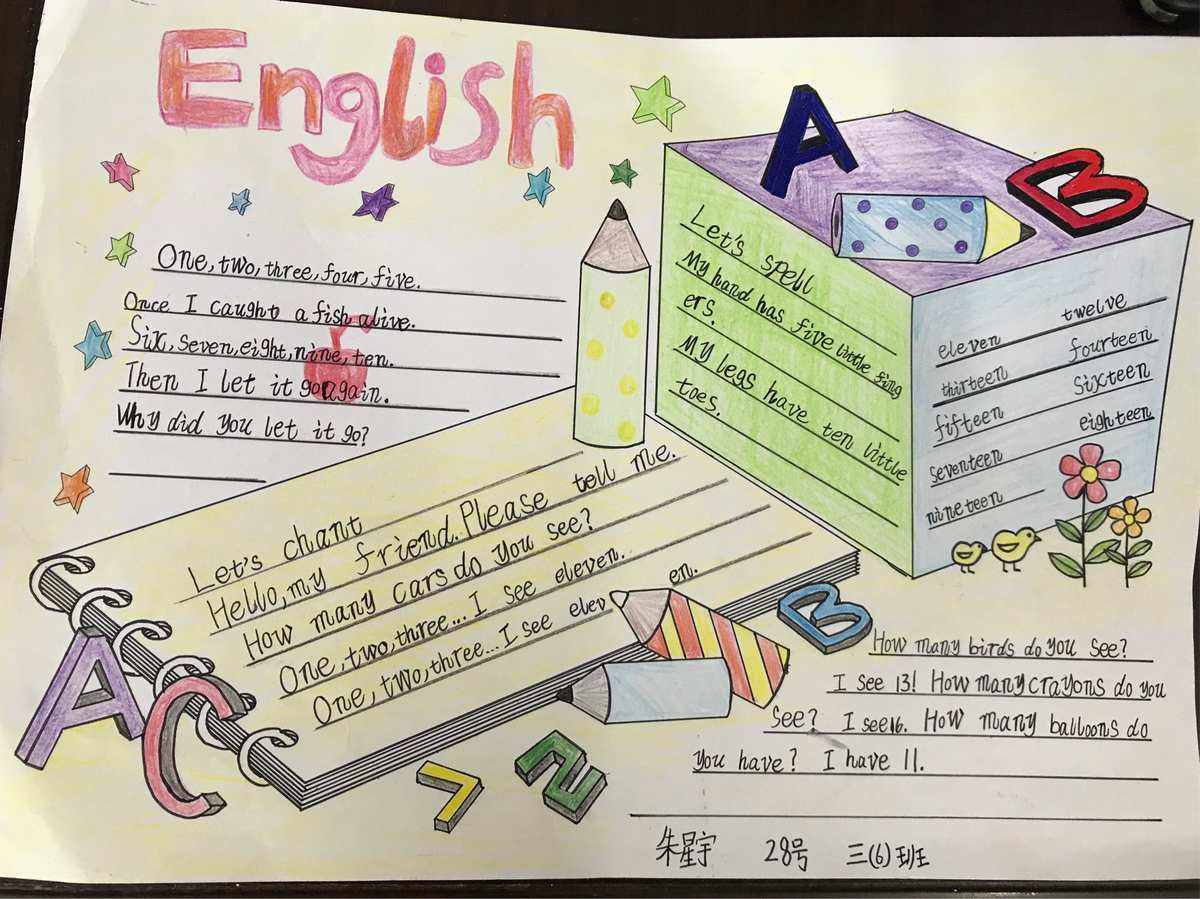 English
One, two, three, four, five.
Once I caught a fish alive.
Six, seven, eight, nine, ten.
Then I let it go again.
Why did you let it go?
Let's spell
My hand has five little fing
ers.
My legs have ten little
toes.
eleven twelve
thirteen fourteen
fifteen sixteen
seventeen eighteen
nineteen
Let's chant
Hello, my friend. Please tell me.
How many cars do you see?
One, two, three... I see eleven.
One, two, three... I see eleven.
How many birds do you see?
I see 13! How many crayons do you
see? I see 16. How many balloons do
you have? I have 11.
A
B
A
C
B
7
2
朱星宇 28号 三(6)班